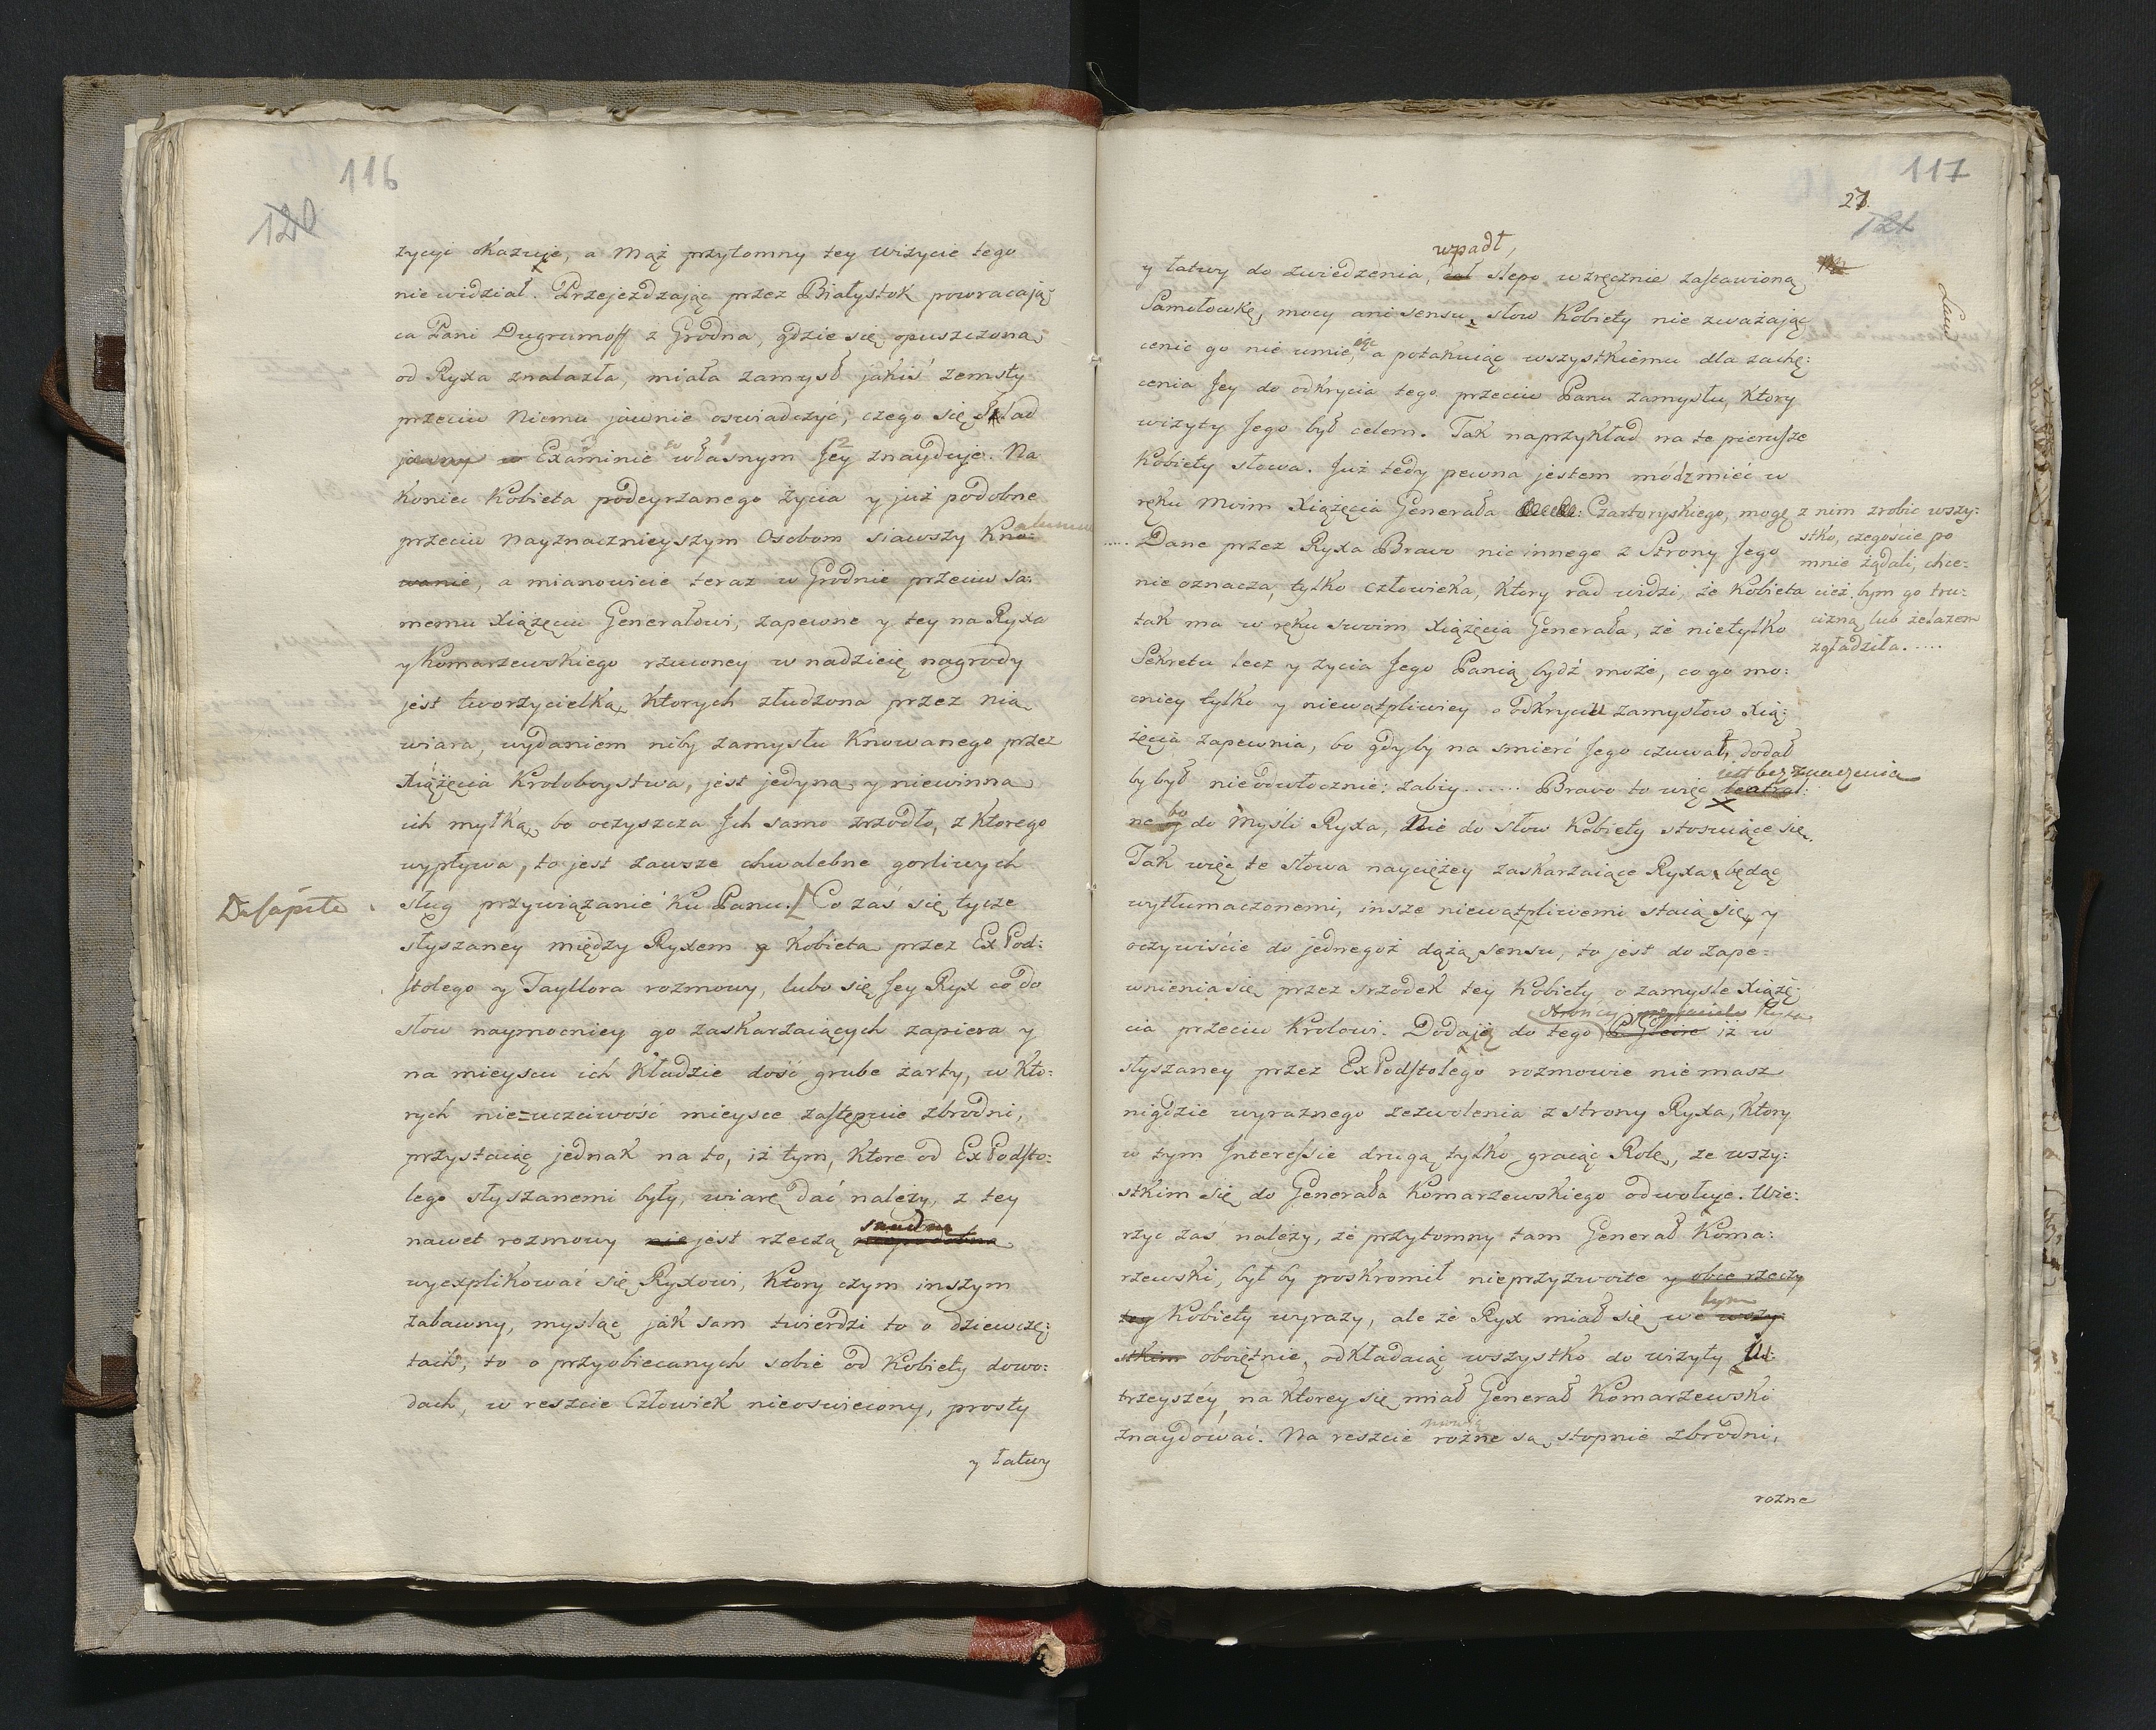 116
120
zycyi okazuje, a Mąż przytomny tey wizycie tego
nie widział. Przejeżdzając przez Białystok powracają-
ca Pani Dugrumoff z Grodna, gdzie się opuszczoną
od Ryxa znalazła, miała zamysł jakiś zemsty
przeciw Niemu jawnie oswiadczyć, czego się ślad
jawny w Examinie własnym Jey znayduje. Na
koniec Kobieta podeyrzanego życia y już podobne
przeciw Nayznacznieyszym Osobom siawszy Kno-
wanie, a mianowicie teraz w Grodnie przeciw sa-
memu Xiążęciu Generałowi, zapewne y tey na Ryxa
y Komarzewskiego rzuconey w nadzieię nagrody
jest tworzycielką, Ktorych złudzona przez nią
wiara, wydaniem niby zamysłu Knowanego przez
Xiążęcia Kroloboystwa, jest jedyną y niewinną
ich myłką, bo oczyszcza Jch samo zrzodło, z Ktorego
wypływa, to jest zawsze chwalebne gorliwych
sług przywiązanie ku Panu. [Co zaś się tycze
słyszaney między Ryxem y Kobietą przez Ex Pod-
stolego y Tayllora rozmowy, lubo się Jey Ryx co do
słow naymocniey go zaskarzaiących zapiera y
na mieyscu ich Kładzie dość grube żarty, w Kto-
rych nie=uczciwość mieysce zastępuie zbrodni,
przystaiąc jednak na to, iż tym, Ktore od Ex Podsto-
lego słyszanemi były, wiarę dać należy, z tey
nawet rozmowy nie jest rzeczą niepodobną
wyexplikować się Ryxowi, Ktory czym inszym
zabawny, mysląc jak sam twierdzi to o dziewczę-
tach, to o przyobiecanych sobie od Kobiety dowo-
dach, w reszcie Człowiek nieoswiecony, prosty
y łatwy
117
27.
121
wpadł,
y łatwy do zwiedzenia, slepo w zręcznie zastawioną
Samołowkę, mocy ani sensu słow Kobiety nie zważając
cenić go nie umie, a potakuiąc wszystkiemu dla zachę-
cenia Jey do odkrycia tego przeciw Panu zamysłu, Ktory
wizyty Jego był celem. Tak naprzykład na te pierwsze
Kobiety słowa. Już tedy pewna jestem módz mieć w
ręku Moim Xiążęcia Generała Czartoryskiego, mogę z nim zrobić wszy-
stko, czegoście po
mnie żądali, chce-
cież bym go tru-
cizną lub żelazem
zgładziła.....
..... Dane przez Ryxa Bravo nic innego z Strony Jego
nie oznacza, tylko człowieka, Ktory rad widzi, że Kobieta
tak ma w ręku swoim Xiążęcia Generała, że nietylko
Sekretu lecz y życia Jego Panią bydź może, co go mo-
cniey tylko y niewątpliwiey o odkryciu zamysłow Xią-
żęcia zapewnia, bo gdyby na smierć Jego czuwał, dodał
by był nieodwłocznie: zabiy...... Bravo to więc teatral-
jest bez znaczenia
ne bo do Myśli Ryxa, Nie do słow Kobiety stosuiące się.
Tak więc te słowa nayciężey zaskarzaiące Ryxa, będąc
wytłumaczonemi, insze niewątpliwemi staią się, y
oczywiście do jednegoż dążą sensu, to jest do zape-
wnienia się przez srzodek tey Kobiety o zamysle Xiążę-
cia przeciw Krolowi. Dodają do tego iż w
słyszaney przez Ex Podstolego rozmowie nie masz
nigdzie wyraznego zezwolenia z strony Ryxa, Ktory
w tym Jnteressie drugą tylko graiąc Rolę, ze wszy-
stkim się do Generała Komarzewskiego odwołuje. Wie-
rzyć zaś należy, że przytomny tam Generał Koma-
rzewski, był by poskromił nieprzyzwoite y obce rzeczy
tey Kobiety wyrazy, ale że Ryx miał się we wszy-
tym
stkim oboiętnie, odkładaiąc wszystko do wizyty Ju-
trzeyszéy, na ktorey się miał Generał Komarzewski
znaydować. Na reszcie rożne są stopnie zbrodni,
rożne